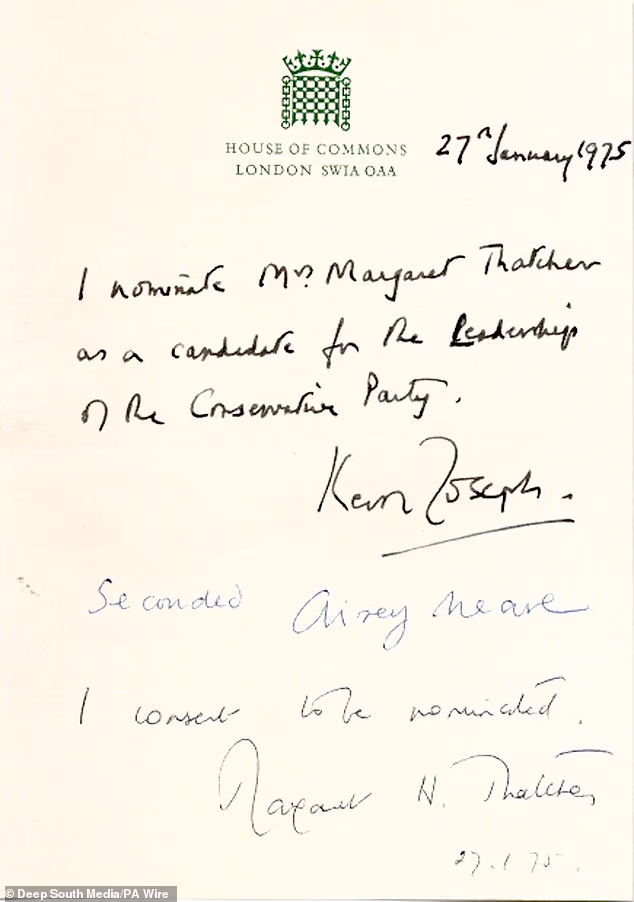 HOUSE OF COMMONS
LONDON SW1A 0AA
27th January 1975
I nominate Mrs. Margaret Thatcher
as a candidate for the Leadership
of the Conservative Party.
Keith Joseph.
Seconded Airey Neave
I consent to be nominated.
Margaret H. Thatcher
27.1.75.
© Deep South Media/PA Wire